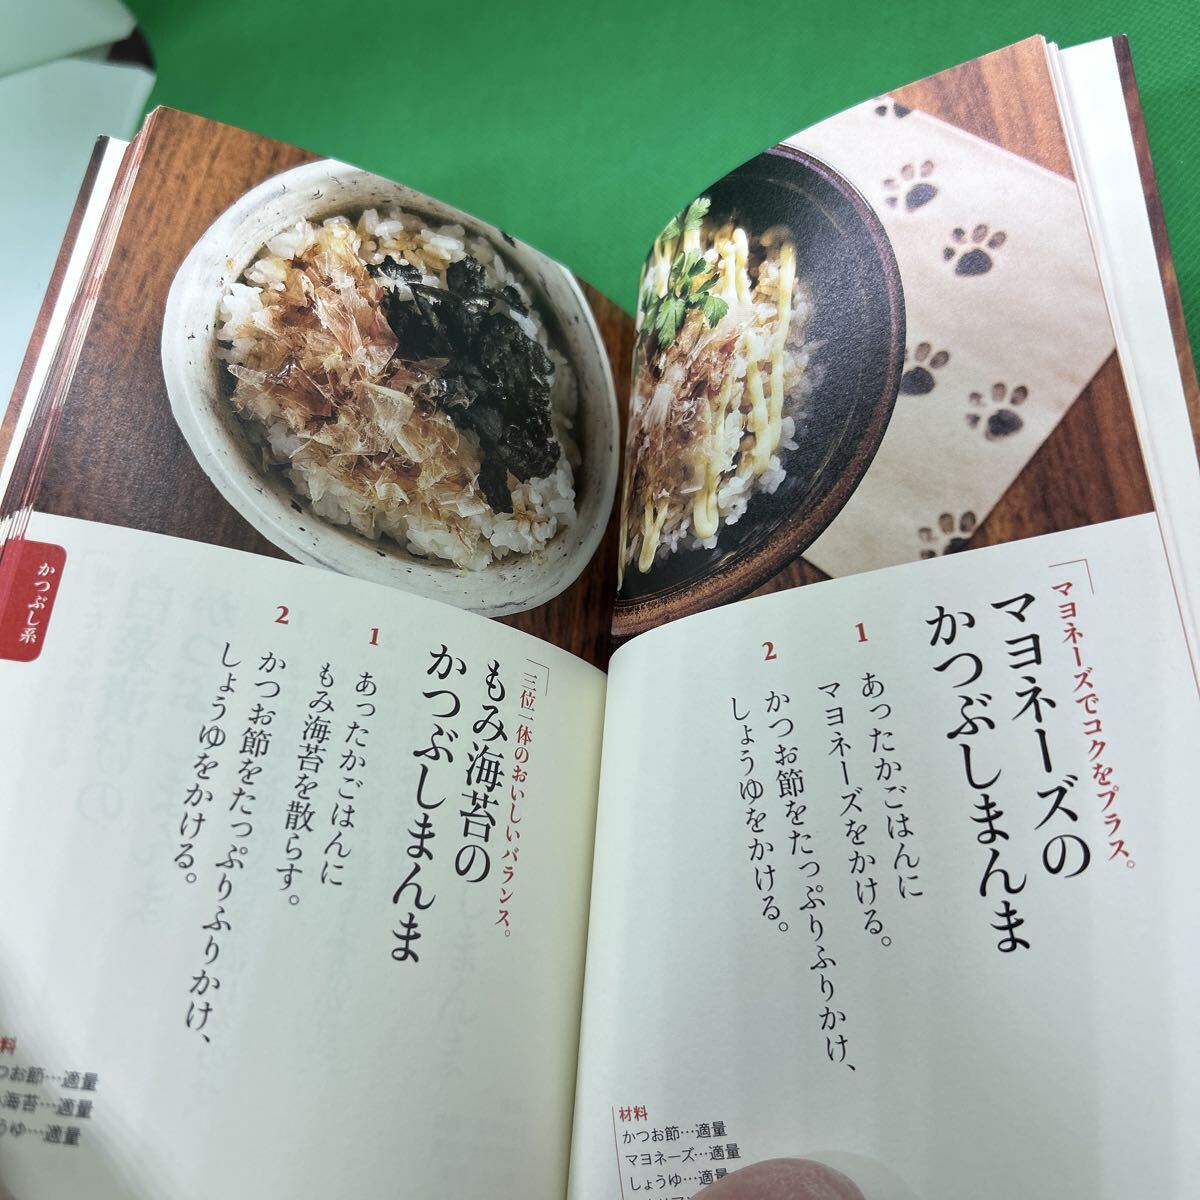 「マヨネーズでコクをプラス。
マヨネーズの
かつぶしまんま
1
あったかごはんに
マヨネーズをかける。
2
かつお節をたっぷりふりかけ、
しょうゆをかける。
材料
かつお節…適量
マヨネーズ…適量
しょうゆ…適量
「三位一体のおいしいバランス。
もみ海苔の
かつぶしまんま
1
あったかごはんに
もみ海苔を散らす。
2
かつお節をたっぷりふりかけ、
しょうゆをかける。
料
つお節…適量
海苔…適量
うゆ…適量
かつぶし系